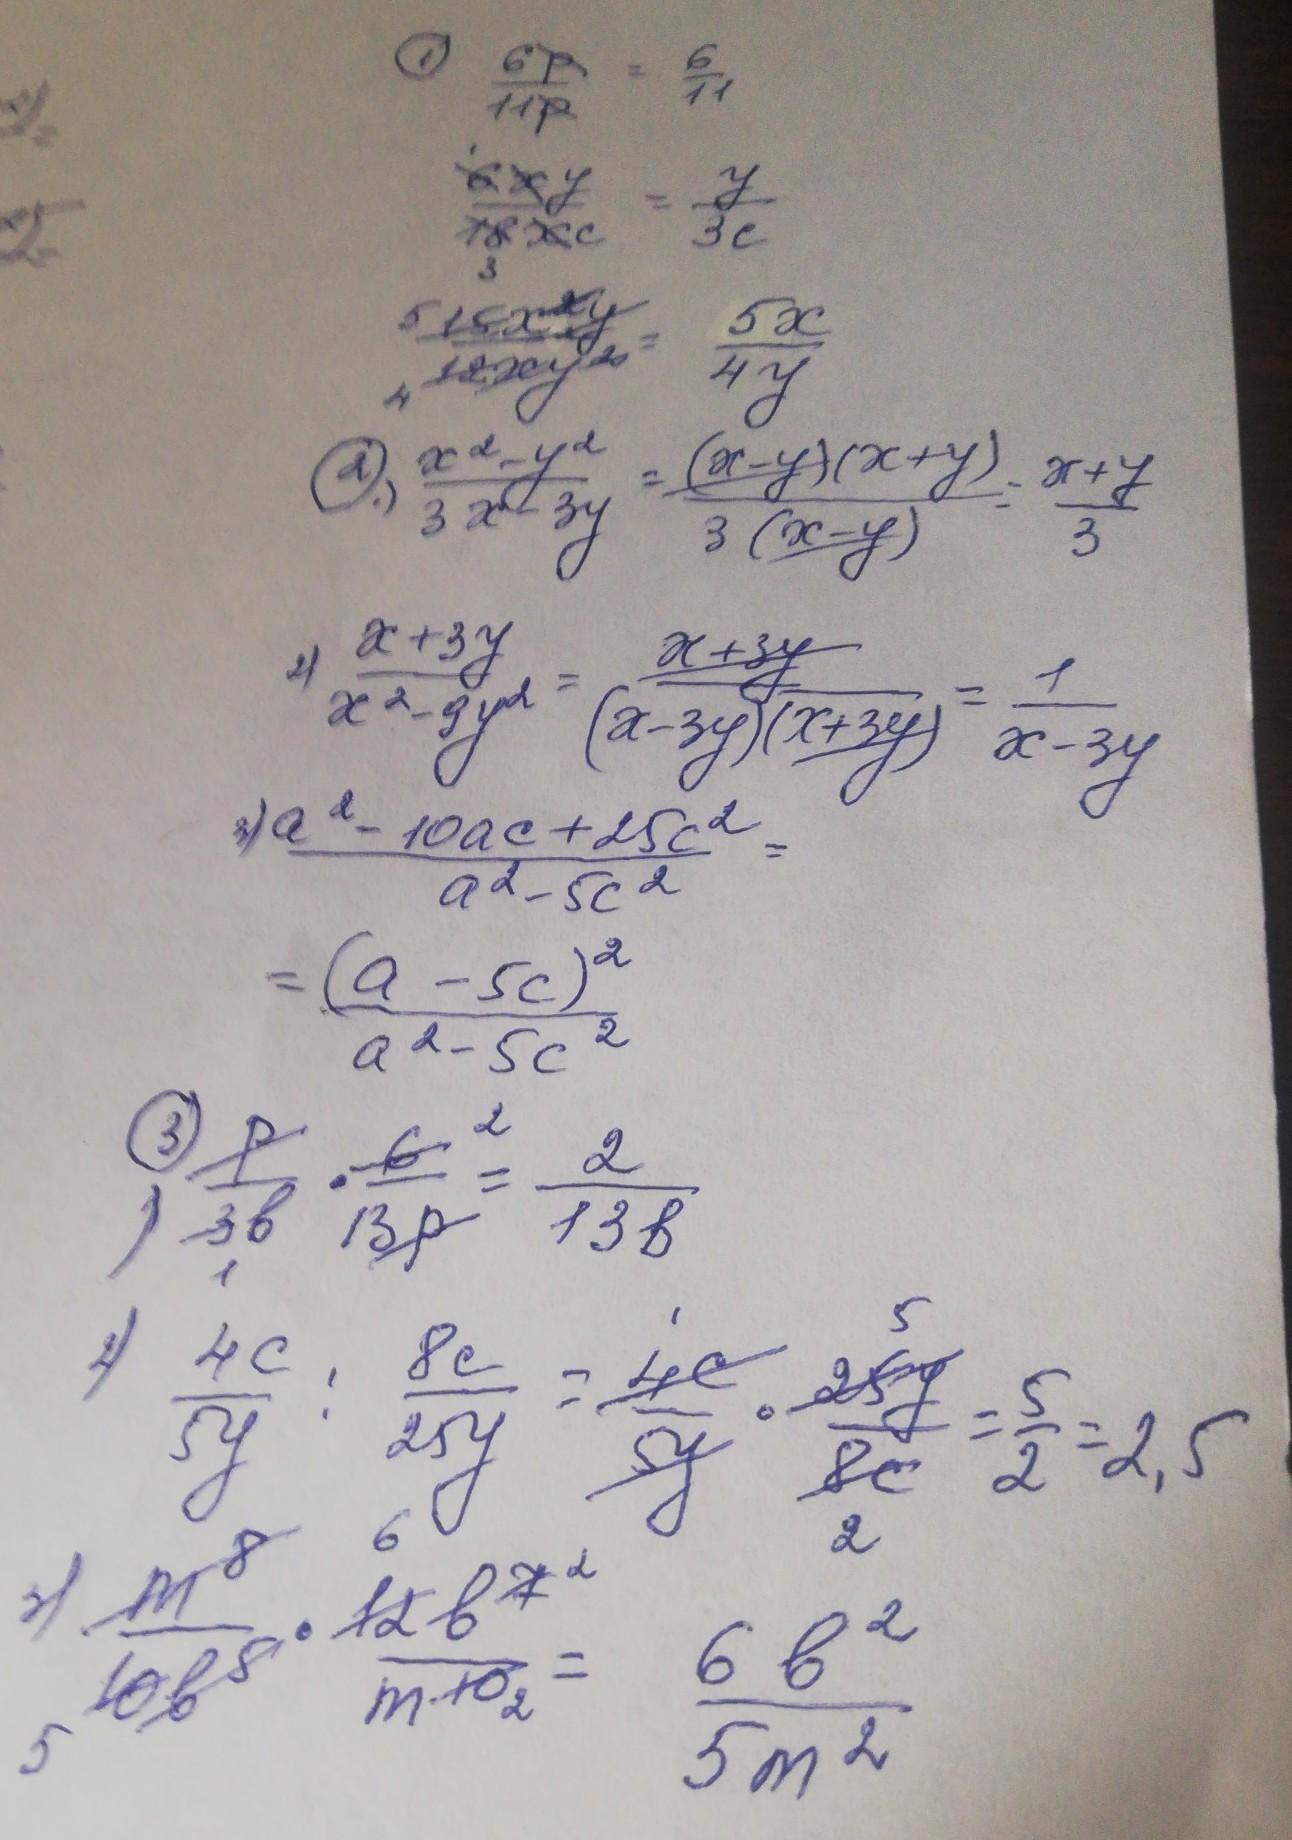 ① 6p/11p = 6/11
6xy/18xc = y/3c
15x²y/12xy² = 5x/4y
② 1) (x²-y²)/(3x-3y) = (x-y)(x+y)/3(x-y) = (x+y)/3
2) (x+3y)/(x²-9y²) = (x+3y)/(x-3y)(x+3y) = 1/(x-3y)
3) (a²-10ac+25c²)/(a²-5c²) =
= (a-5c)²/(a²-5c²)
③ 1) p/3b · 6/13p = 2/13b
2) 4c/5y : 8c/25y = 4c/5y · 25y/8c = 5/2 = 2,5
3) m⁸/10b⁵ · 12b⁷/m¹⁰ = 6b²/5m²